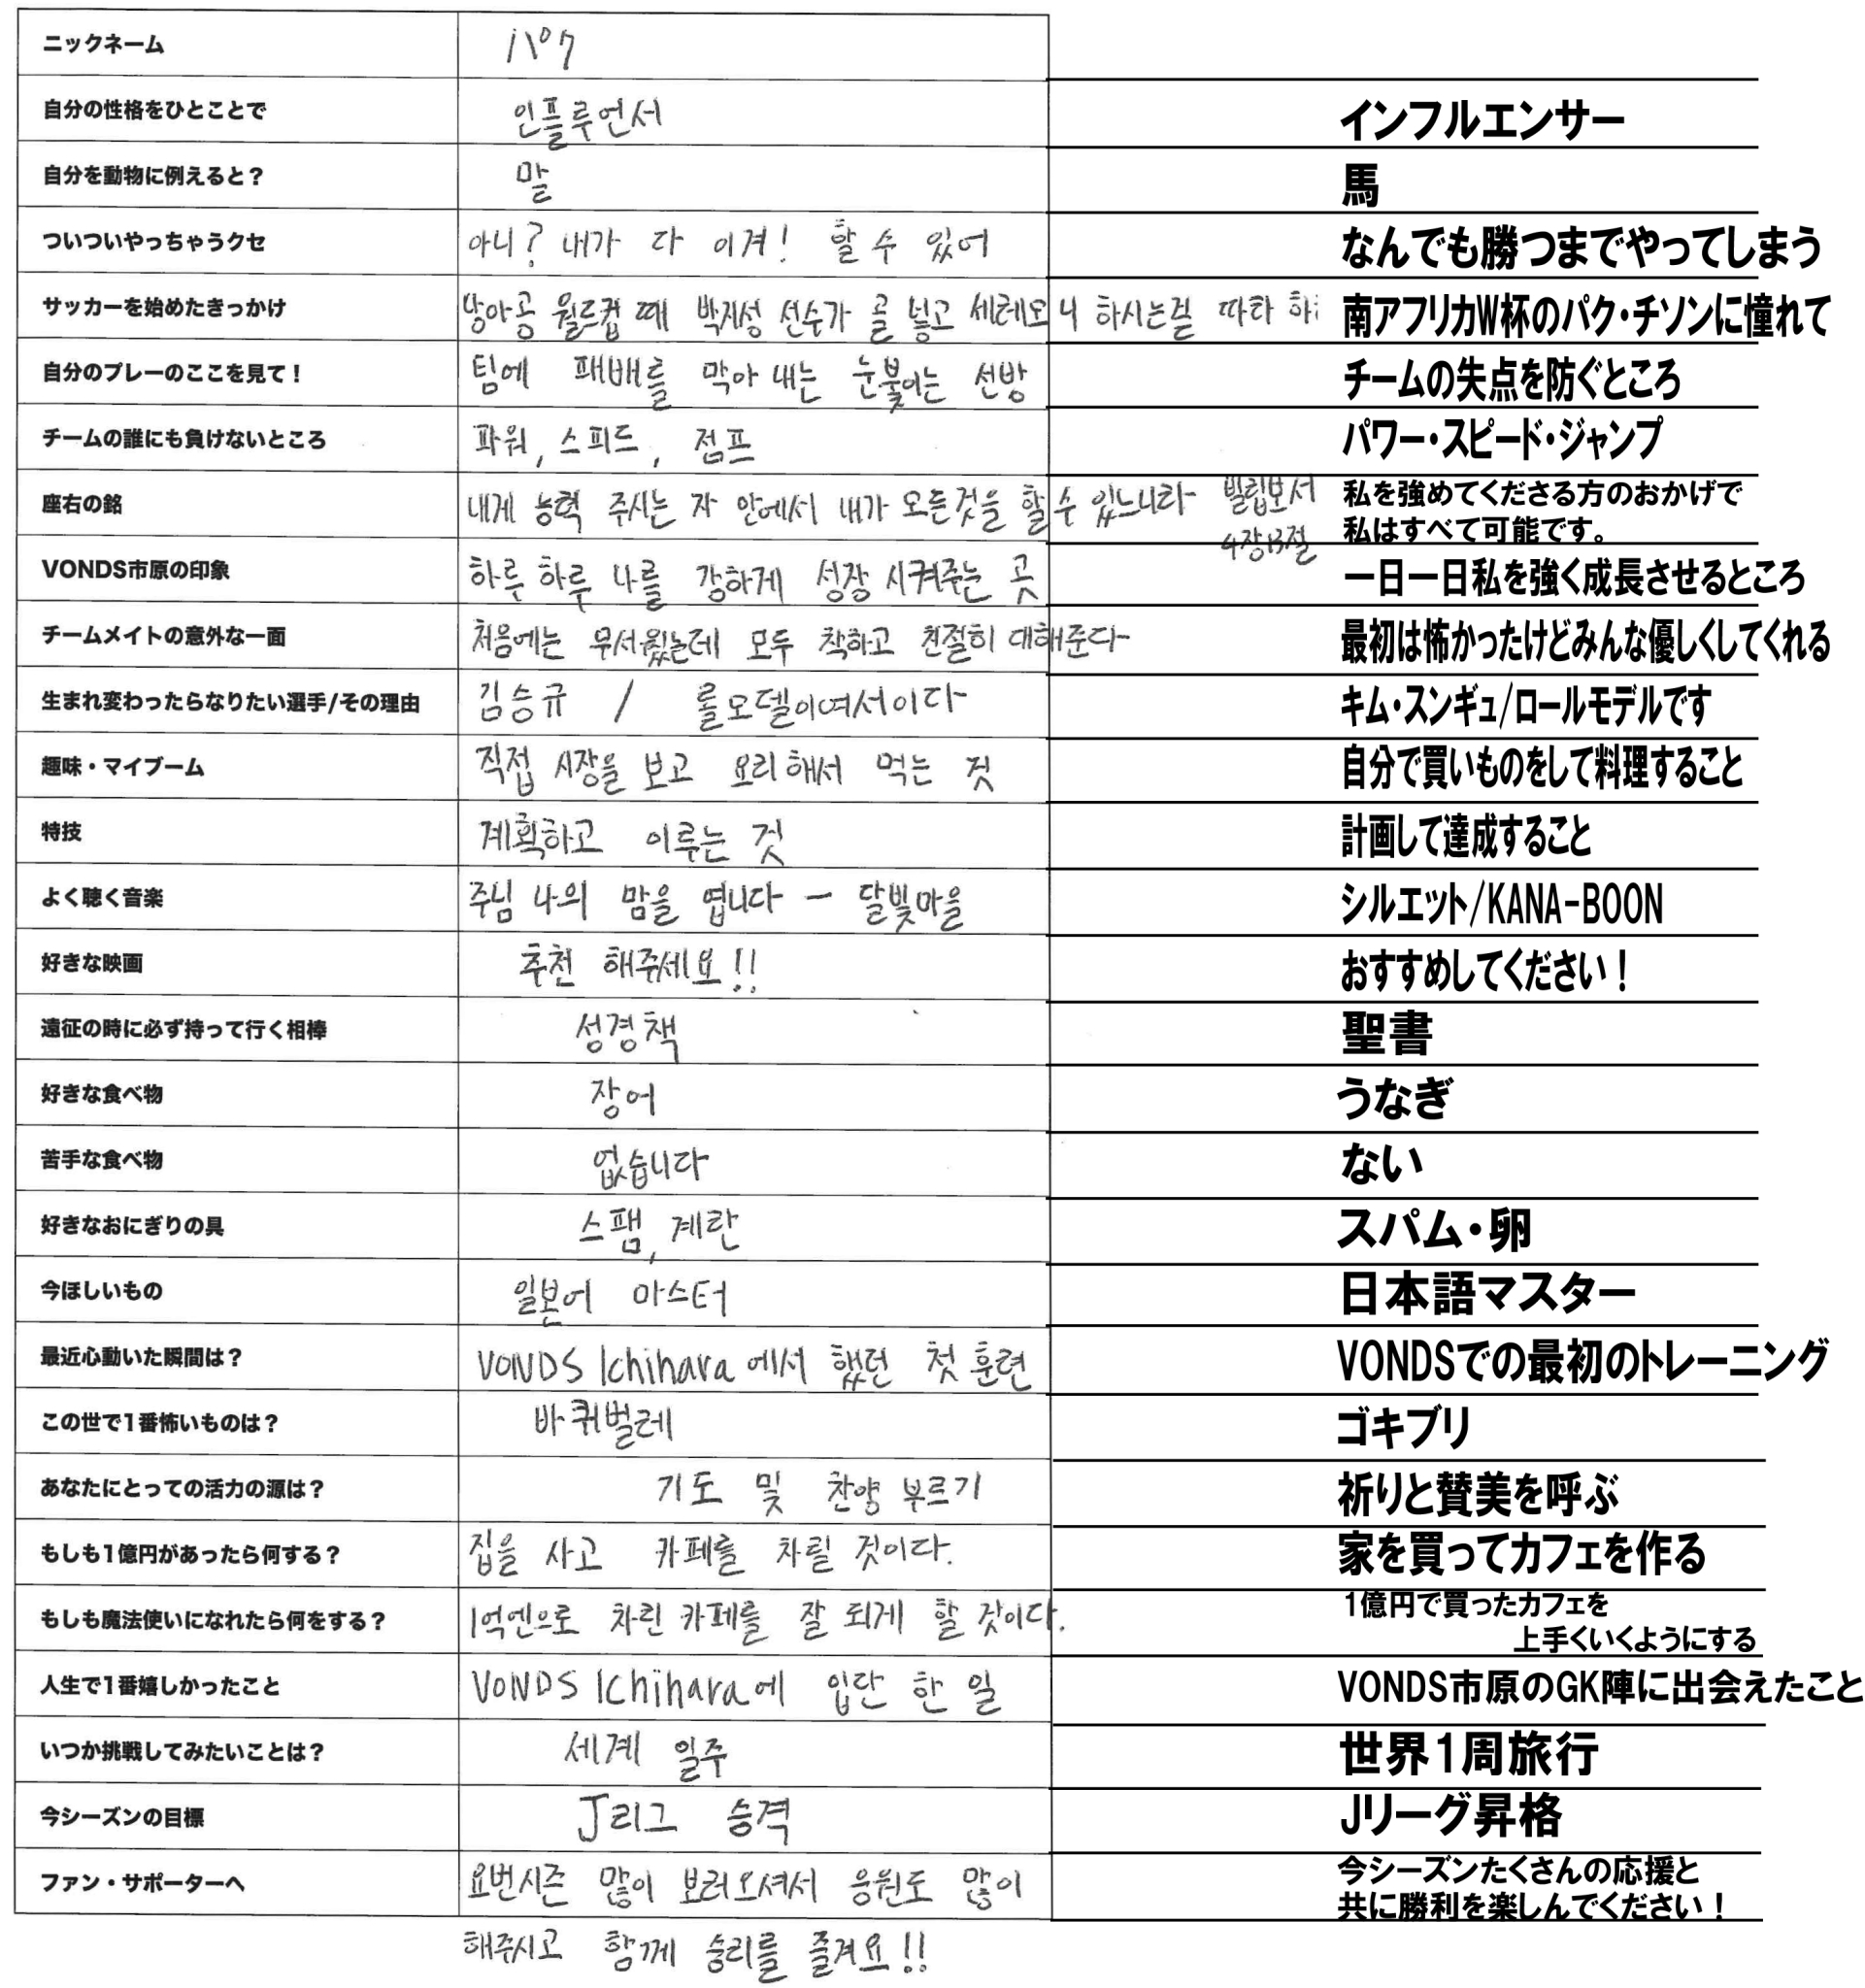 ニックネーム パク
自分の性格をひとことで 인플루언서 インフルエンサー
自分を動物に例えると？ 말 馬
ついついやっちゃうクセ 아니? 내가 다 이겨! 할 수 있어 なんでも勝つまでやってしまう
サッカーを始めたきっかけ 남아공 월드컵 때 박지성 선수가 골 넣고 세레모니 하시는걸 따라 하 南アフリカW杯のパク・チソンに憧れて
自分のプレーのここを見て！ 팀에 패배를 막아 내는 눈붗이는 선방 チームの失点を防ぐところ
チームの誰にも負けないところ 파워, 스피드, 점프 パワー・スピード・ジャンプ
座右の銘 내게 능력 주시는 자 안에서 내가 모든것을 할 수 있느니라 빌립보서 私を強めてくださる方のおかげで
4장13절 私はすべて可能です。
VONDS市原の印象 하루 하루 나를 강하게 성장 시켜주는 곳 一日一日私を強く成長させるところ
チームメイトの意外な一面 처음에는 무서웠는데 모두 착하고 친절히 대해준다 最初は怖かったけどみんな優しくしてくれる
生まれ変わったらなりたい選手/その理由 김승규 / 롤모델이여서이다 キム・スンギュ/ロールモデルです
趣味・マイブーム 직접 시장을 보고 요리해서 먹는 것 自分で買いものをして料理すること
特技 계획하고 이루는 것 計画して達成すること
よく聴く音楽 주님 나의 맘을 엽니다 - 달빛마을 シルエット/KANA-BOON
好きな映画 추천 해주세요!! おすすめしてください！
遠征の時に必ず持って行く相棒 성경책 聖書
好きな食べ物 장어 うなぎ
苦手な食べ物 없습니다 ない
好きなおにぎりの具 스팸, 계란 スパム・卵
今ほしいもの 일본어 마스터 日本語マスター
最近心動いた瞬間は？ VONDS Ichihara에서 했던 첫 훈련 VONDSでの最初のトレーニング
この世で1番怖いものは？ 바퀴벌레 ゴキブリ
あなたにとっての活力の源は？ 기도 및 찬양 부르기 祈りと賛美を呼ぶ
もしも1億円があったら何する？ 집을 사고 카페를 차릴 것이다. 家を買ってカフェを作る
もしも魔法使いになれたら何をする？ 1억엔으로 차린 카페를 잘 되게 할 것이다. 1億円で買ったカフェを
上手くいくようにする
人生で1番嬉しかったこと VONDS Ichihara에 입단 한 일 VONDS市原のGK陣に出会えたこと
いつか挑戦してみたいことは？ 세계 일주 世界1周旅行
今シーズンの目標 J리그 승격 Jリーグ昇格
ファン・サポーターへ 요번시즌 많이 보러오셔서 응원도 많이 今シーズンたくさんの応援と
共に勝利を楽しんでください！
해주시고 함께 승리를 즐겨요!!